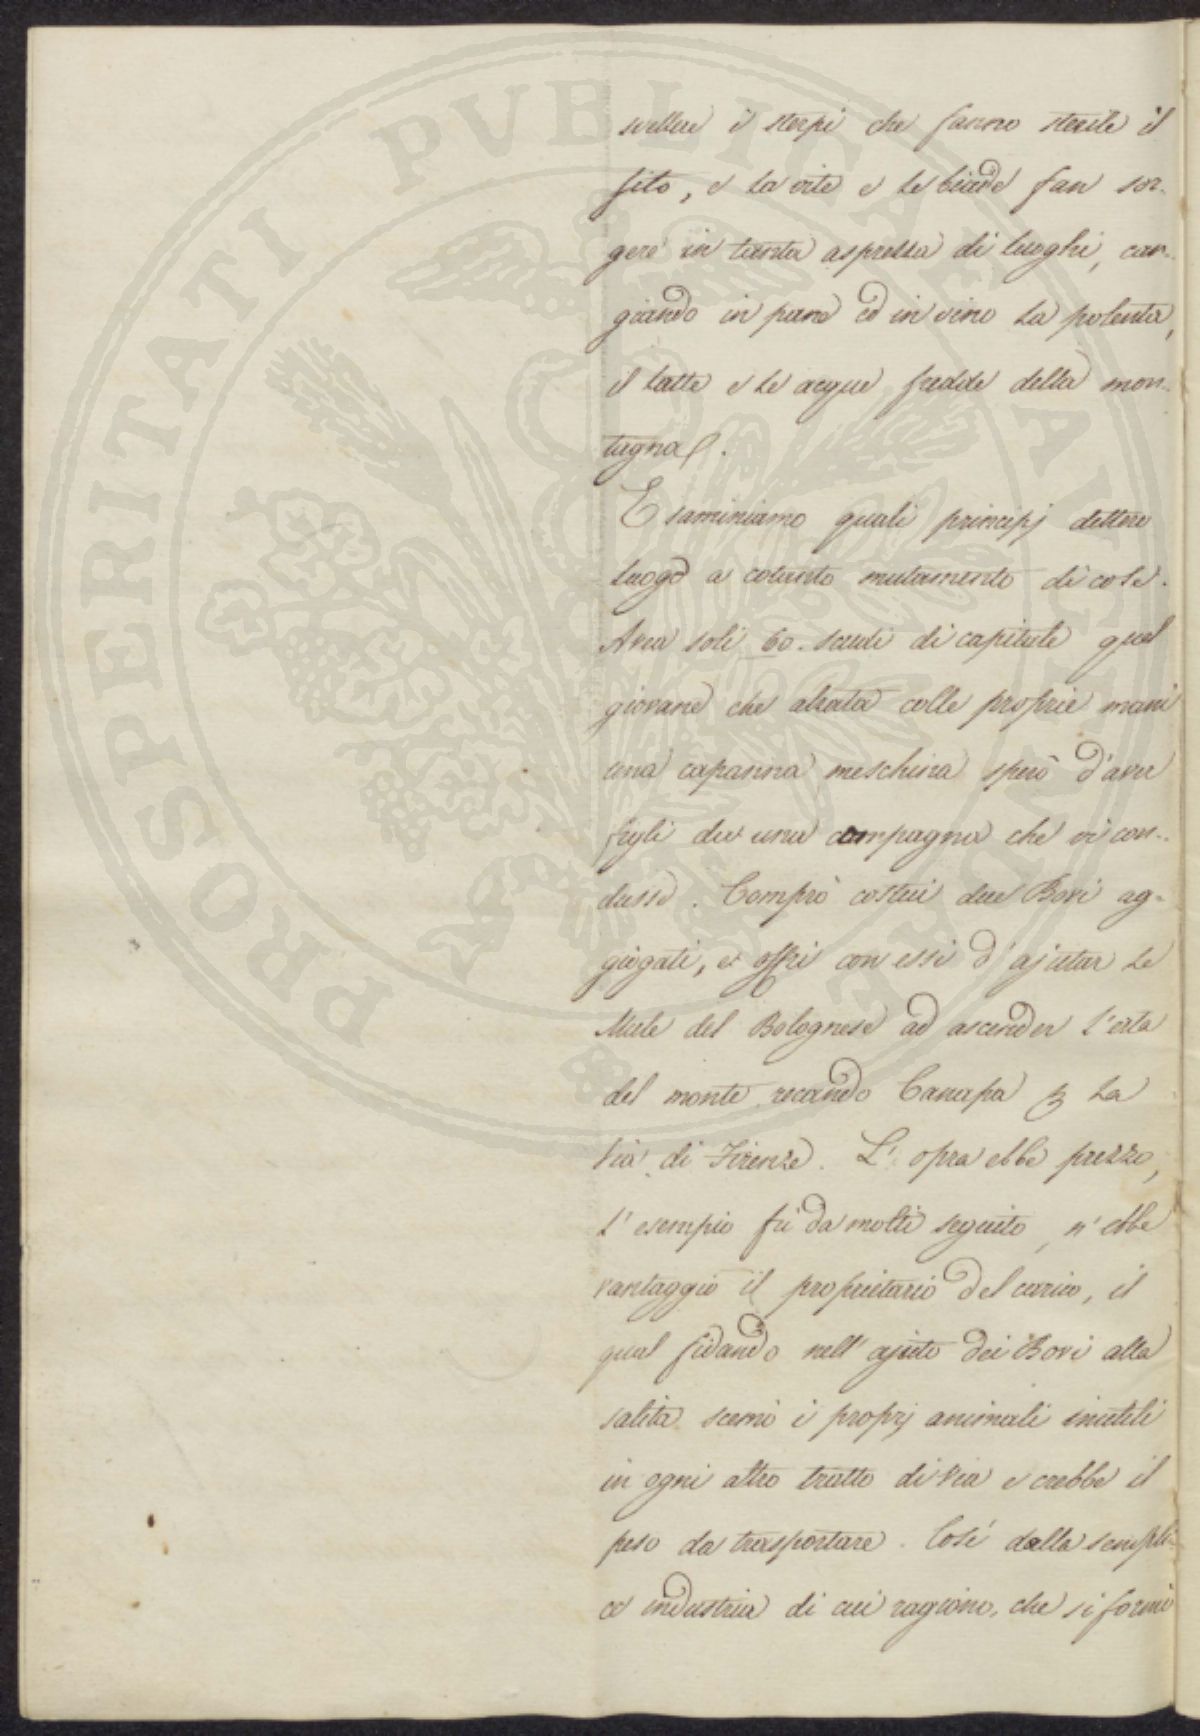 svellere i sterpi che fanno sterile il
sito, e la vite e le biade fan sor-
gere in tanta asprezza di luoghi, can-
giando in pane ed in vino la polenta,
il latte e le acque fredde della mon-
tagna.
Esaminiamo quali principj dettero
luogo a cotanto mutamento di cose.
Avea soli 60. scudi di capitale quel
giovane che alzata colle proprie mani
una capanna meschina sperò d'aver
figli da una compagna che vi con-
dusse. Comprò costui due Bovi ag-
giogati, e offrì con essi d'ajutar le
Mule del Bolognese ad ascender l'erta
del monte recando Canapa p la
via di Firenze. L'opra ebbe prezzo,
l'esempio fù da molti seguito, n'ebbe
vantaggio il proprietario del carico, il
qual fidando nell'ajuto dei Bovi alla
salita scemò i proprj animali inutili
in ogni altro tratto di via e crebbe il
peso da trasportare. Così dalla sempli-
ce industria di cui ragiono, che si formò
PROSPERITATI PUBLICAE AUGENDAE